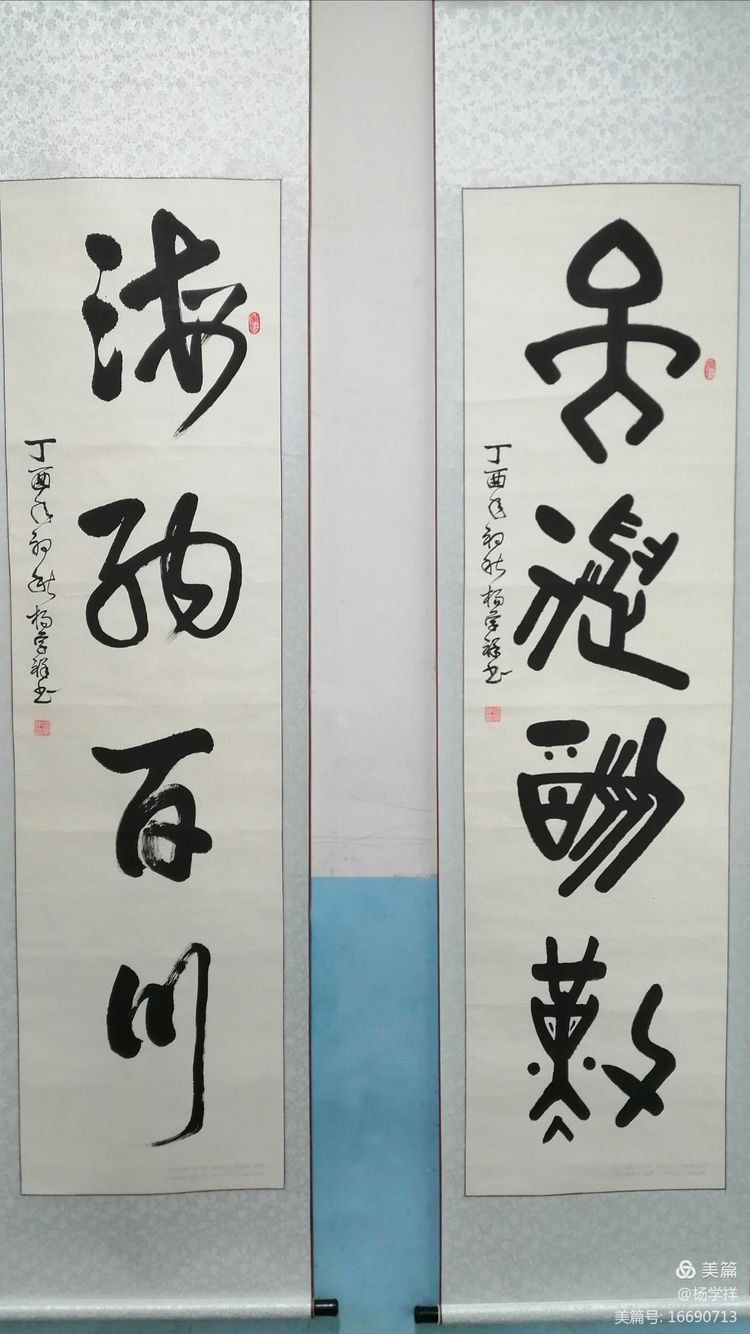 天道酬勤
丁酉年初秋杨学祥书
海纳百川
丁酉年初秋杨学祥书
美篇
@杨学祥
美篇号: 16690713